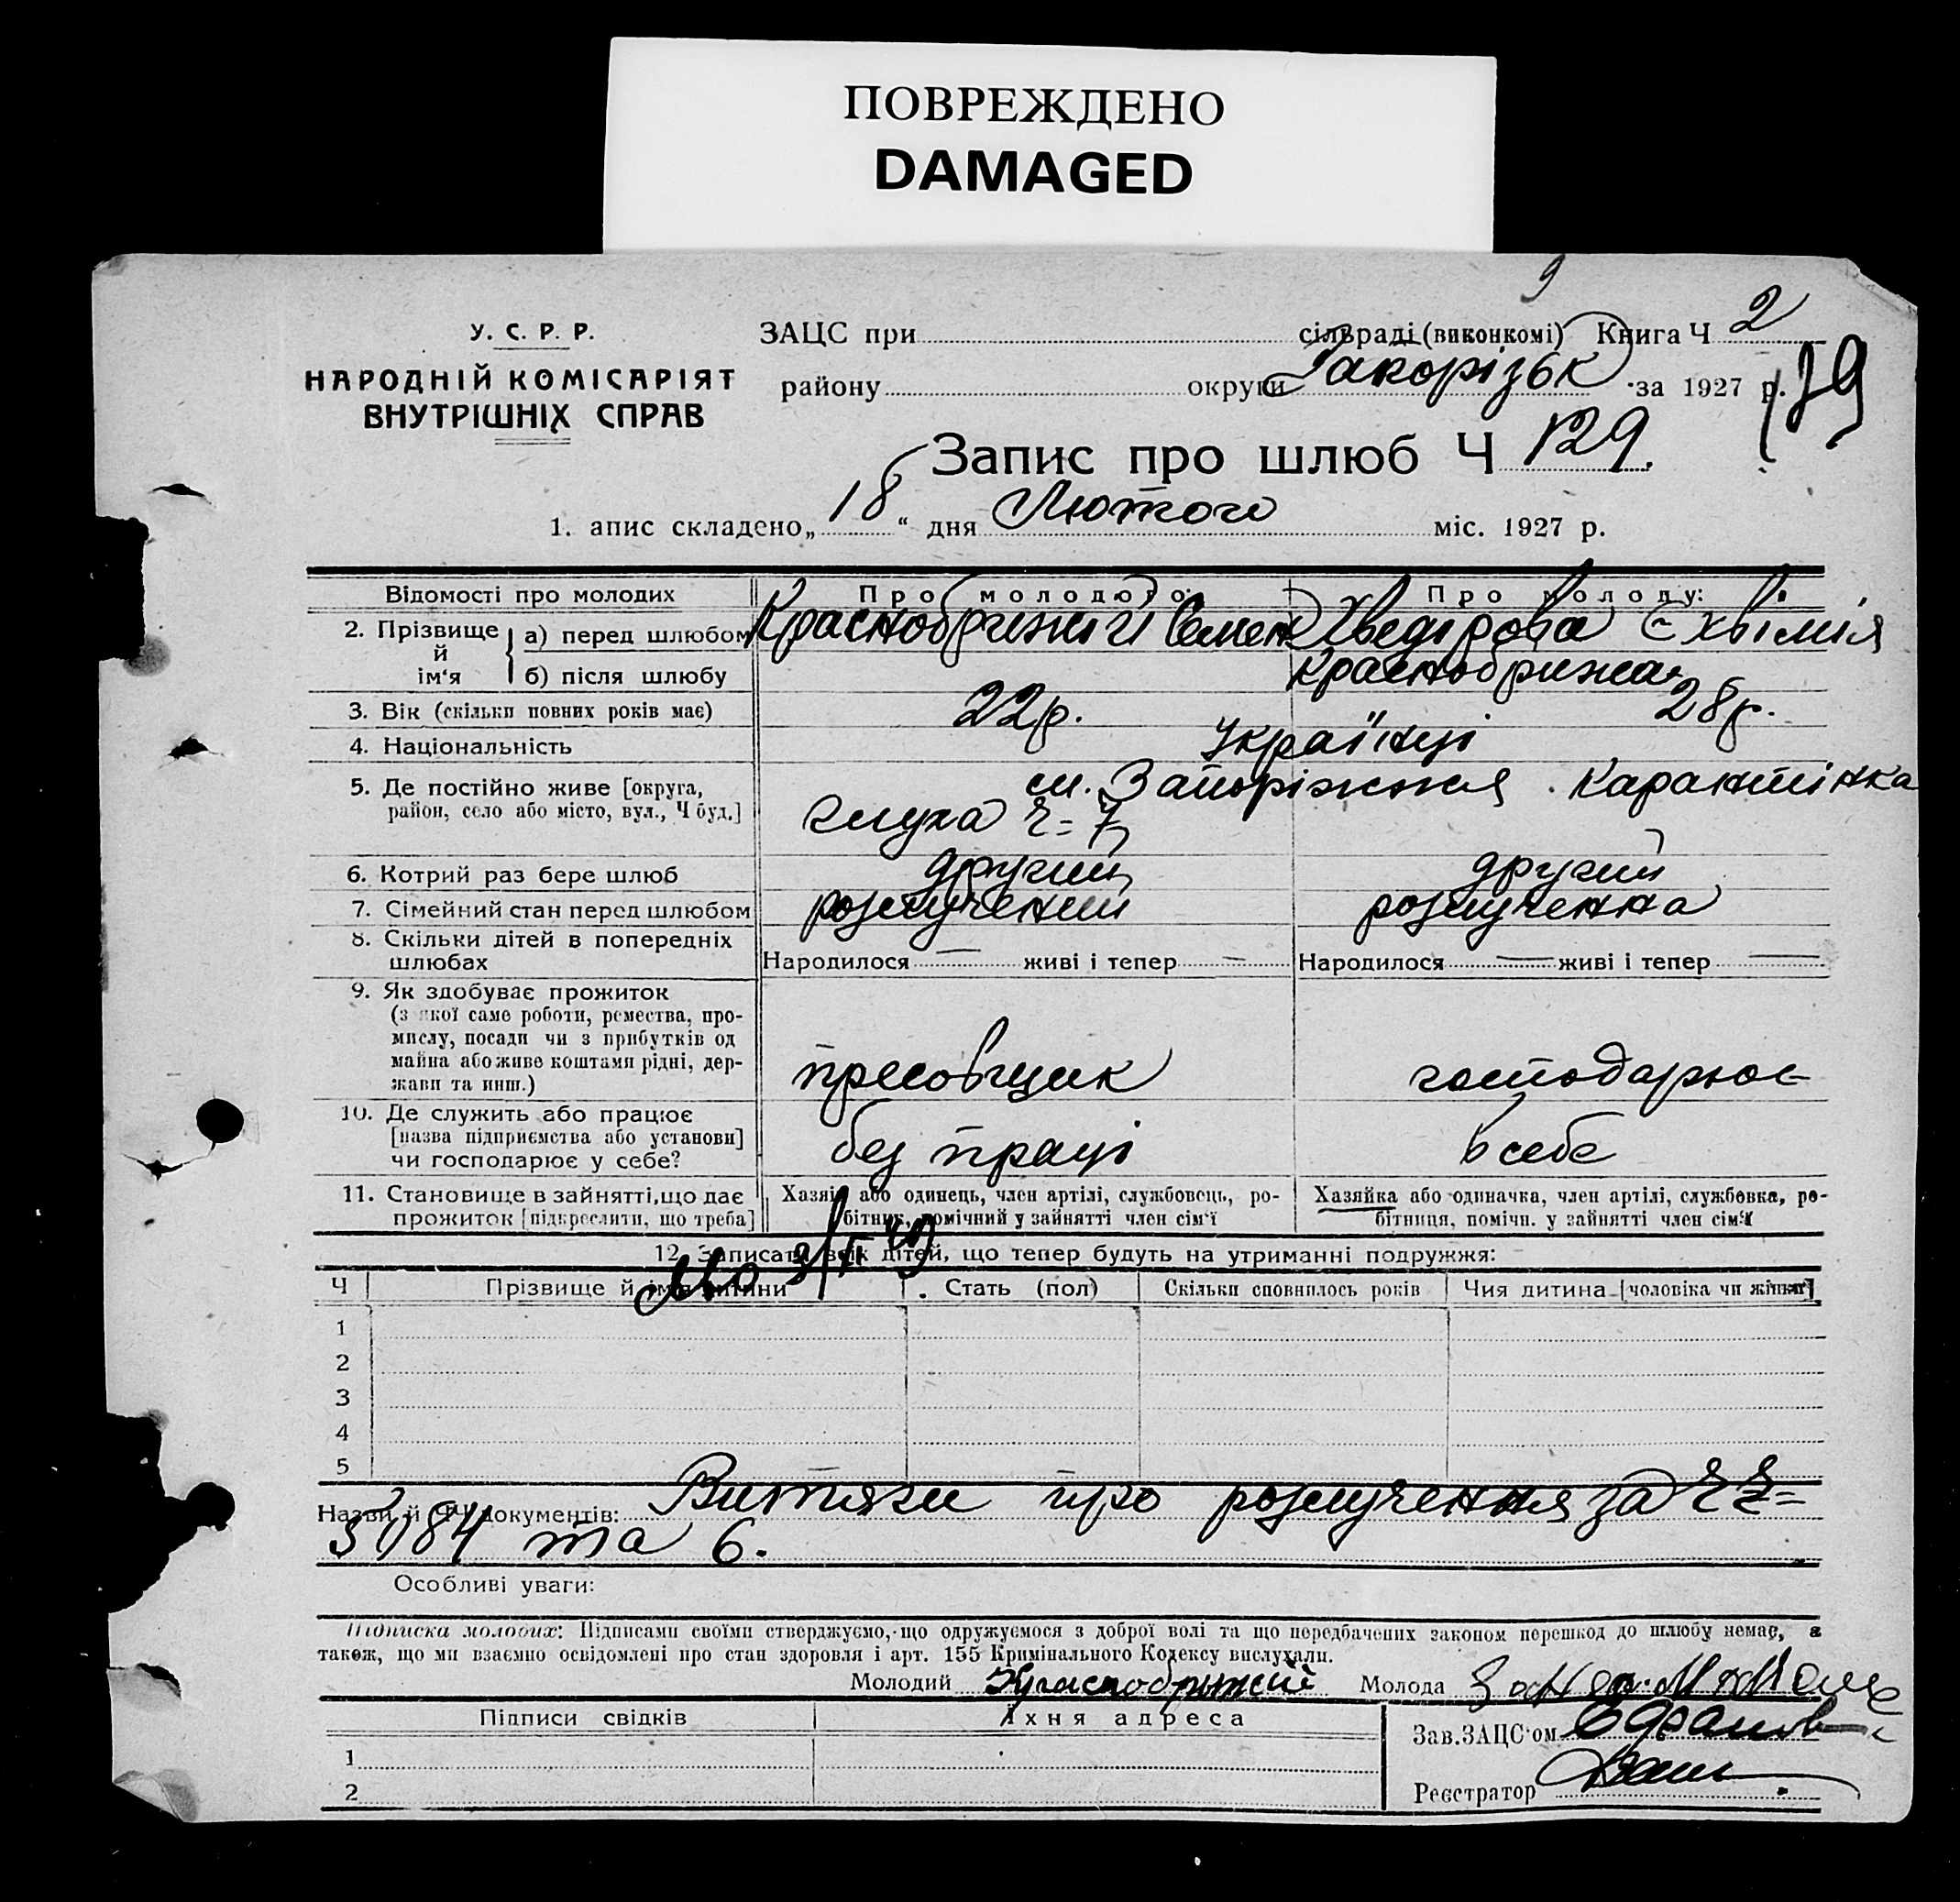 ПОВРЕЖДЕНО
DAMAGED
9
У. С. Р. Р.
НАРОДНІЙ КОМІСАРІЯТ
ВНУТРІШНІХ СПРАВ
ЗАЦС при сільраді (виконкомі) Книга Ч 2
району округи за 1927 р.
Запис про шлюб Ч 129.
1. апис складено „18“ дня Лютого міс. 1927 р.
Відомості про молодих Про молодого: Про молоду:
2. Прізвище й ім‘я
а) перед шлюбом Семен Хведірова Єхвімія
б) після шлюбу
3. Вік (скільки повних років має) 22р. 28р.
4. Національність Українці
5. Де постійно живе [округа, м. Запоріжжя Карантінка
район, село або місто, вул., Ч буд.] глуха ч=7
6. Котрий раз бере шлюб другий другий
7. Сімейний стан перед шлюбом розлучений розлученна
8. Скільки дітей в попередніх
шлюбах Народилося — живі і тепер — Народилося — живі і тепер —
9. Як здобуває прожиток
(з якої саме роботи, ремества, про-
мислу, посади чи з прибутків од
майна або живе коштами рідні, дер-
жави та инш.) пресовщик господарює
10. Де служить або працює
[назва підприємства або установи]
чи господарює у себе? без праці в себе
11. Становище в зайнятті, що дає Хазяїн або одинець, член артілі, службовець, ро- Хазяйка або одиначка, член артілі, службовка, ро-
прожиток [підкреслити, що треба] бітник, помічний у зайнятті член сім‘ї бітниця, помічн. у зайнятті член сім‘ї
12. Записати всіх дітей, що тепер будуть на утриманні подружжя:
Ч Прізвище й ім‘я дитини Стать (пол) Скільки сповнилось років Чия дитина [чоловіка чи жінки]
1
2
3
4
5
Назви й ЧЧ документів: Витяги про розлучення за ЧЧ=
та 6.
Особливі уваги:
Підписка молодих: Підписами своїми стверджуємо, що одружуємося з доброї волі та що передбачених законом перешкод до шлюбу немає, а
також, що ми взаємно освідомлені про стан здоровля і арт. 155 Кримінального Кодексу вислухали.
Молодий Молода
Підписи свідків Їхня адреса
Зав. ЗАЦС‘ом
1
2
Реєстратор